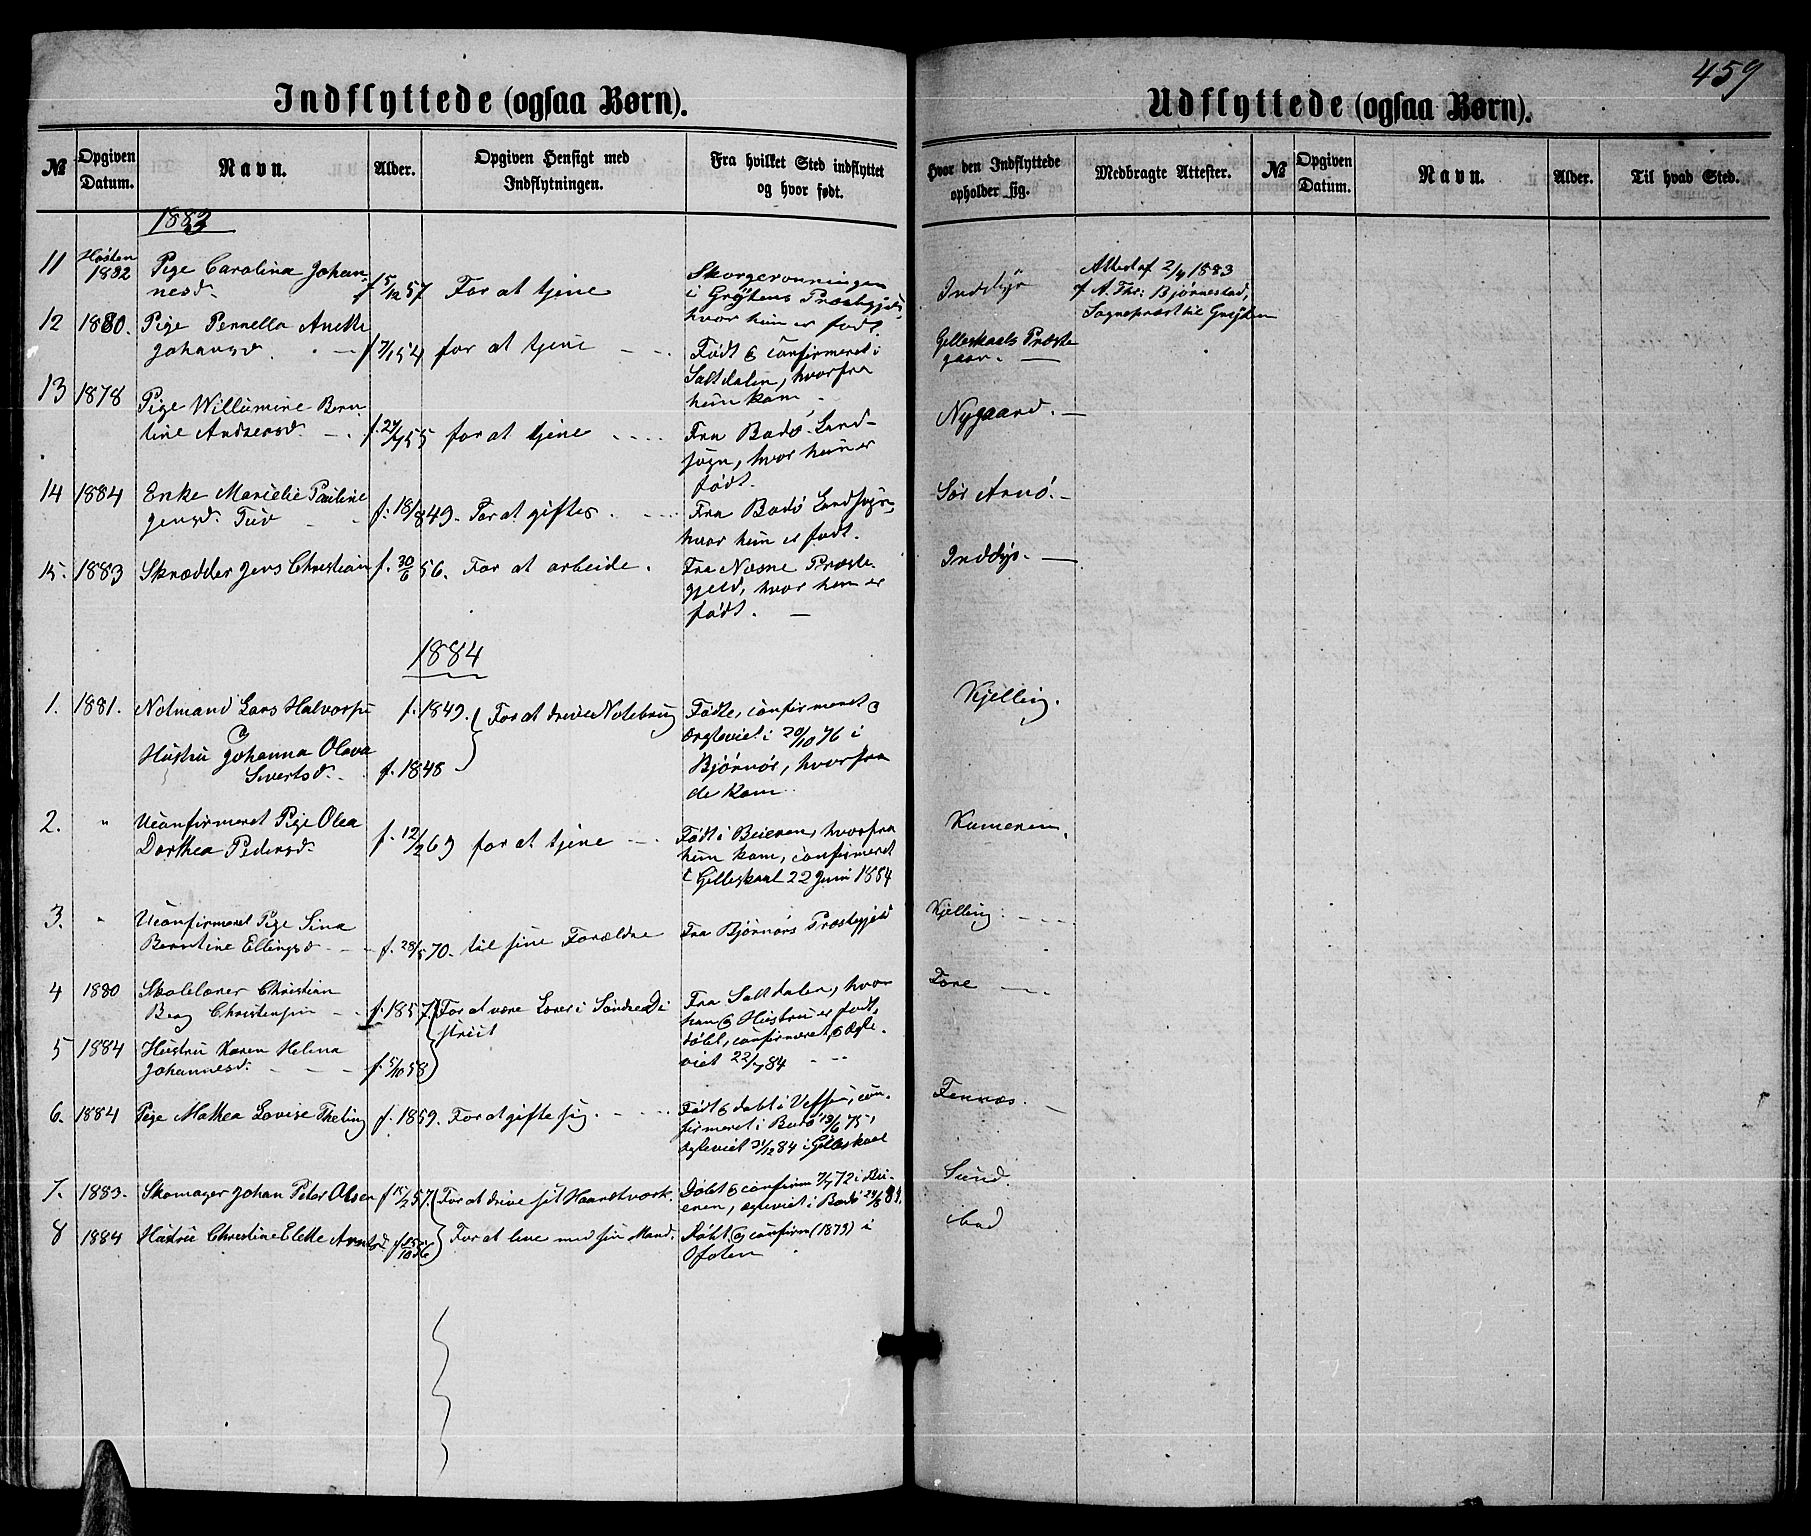 459
Indflyttede (ogsaa Børn).
Udflyttede (ogsaa Børn).
№ Opgiven Datum. Navn. Alder. Opgiven Hensigt med Indflytningen. Fra hvilket Sted indflyttet og hvor født.
Hvor den Indflyttede opholder sig. Medbragte Attester. № Opgiven Datum. Navn. Alder. Til hvad Sted.
1883
11 Høsten 1882 Pige Carolina Johan-
nesd. f. 5/12 57 For at tjene
i Grytens Præstegjeld,
hvor hun er født.
Inddyr
Attest af 2/4 1883
af A. Th: Bjørnestad,
Sognepræst til Grytten
12 1880. Pige Pernella Anette
Johansd. f. 7/1 54 for at tjene
Født & confirmeret i
Saltdalen, hvorfra
hun kom.
Gilleskaals Præste
gaar.
13 1878 Pige Willumine Bern-
tine Andersd. f. 29/4 55 for at tjene
Fra Bodø Land-
sogn, hvor hun er
født.
Nygaard.
14 1884 Enke Marielie Pauline
Jensd. Tuv f. 18/8 49. For at giftes.
Fra Bodø Landsogn,
hvor hun er født.
Sør Arnø.
15. 1883 Skrædder Jens Christian f. 30/6 56. For at arbeide.
Fra Næsne Præste-
gjeld, hvor han er
født.
Inddyr.
1884
1. 1881. Notmand Lars Halvorsen f. 1849. For at drive Notebrug
&
Hustru Johanna Olava
Sivertsd. f. 1848
Fødte, confirmeret &
ægteviet i 20/10 76 i
Bjørnør, hvorfra
de kom.
Kjelling.
2. " Uconfirmeret Pige Olea
Dorthea Pedersd. f. 12/2 69 for at tjene
Født i Beieren, hvorfra
hun kom, confirmeret
i Gilleskaal 22 Juni 1884
3. " Uconfirmeret Pige Sina
Berntine Ellingsd f. 28/5 70. til sine Forældre
Fra Bjørnørs Præstegjeld
Kjelling.
4 1880 Skolelærer Christian
Berg Christensen f. 1857 For at være Lærer i Søndre Di
strict
Fra Saltdalen, hvor
han & Hustru er født,
døbt, confirmeret & ægte-
viet 22/7 84
Fore
5 1884 Hustru Karen Helena
Johannesd. f. 5/10 58
6. 1884 Pige Mathea Lovise Theling f. 1859. For at gifte sig.
Født & døbt i Vefsen, con-
firmeret i Bodø 13/6 75,
ægteviet 31/12 84 i Gilleskaal
Fennæs.
7. 1883. Skomager Johan Peter Olsen f. 15/2 57. For at drive sit Haandtværk.
Døbt & confirm 7/7 72 i Bei-
eren, ægteviet i Bodø 24/8 84.
Sund.
8 1884 Hustru Christine Elette Arntsd f. 15/10 56 For at leve med sin Mand.
Døbt & confirm (1873) i
Ofoten
ibid